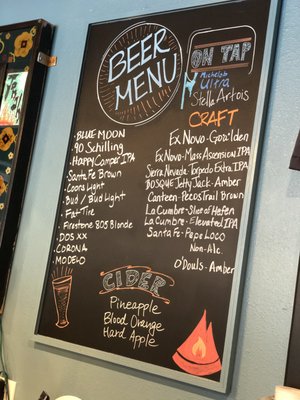 BEER
MENU
ON TAP
Michelob
Ultra
Stella Artois
CRAFT
BLUE MOON
90 Schilling
Happy Camper IPA
Santa Fe Brown
Coors Light
Bud / Bud Light
Fat-Tire
Firestone 805 Blonde
DOS XX
CORONA
MODELO
Ex Novo-
Ex Novo-Mass Ascension IPA
Sierra Nevada-Torpedo Extra IPA
BOSQUE Jetty Jack-Amber
Canteen-Pecos Trail Brown
La Cumbre-Slice of Hefen
La Cumbre-Elevated IPA
Santa Fe-Pepe Loco
Non-Alc.
O'Douls-Amber
CIDER
Pineapple
Blood Orange
Hard Apple